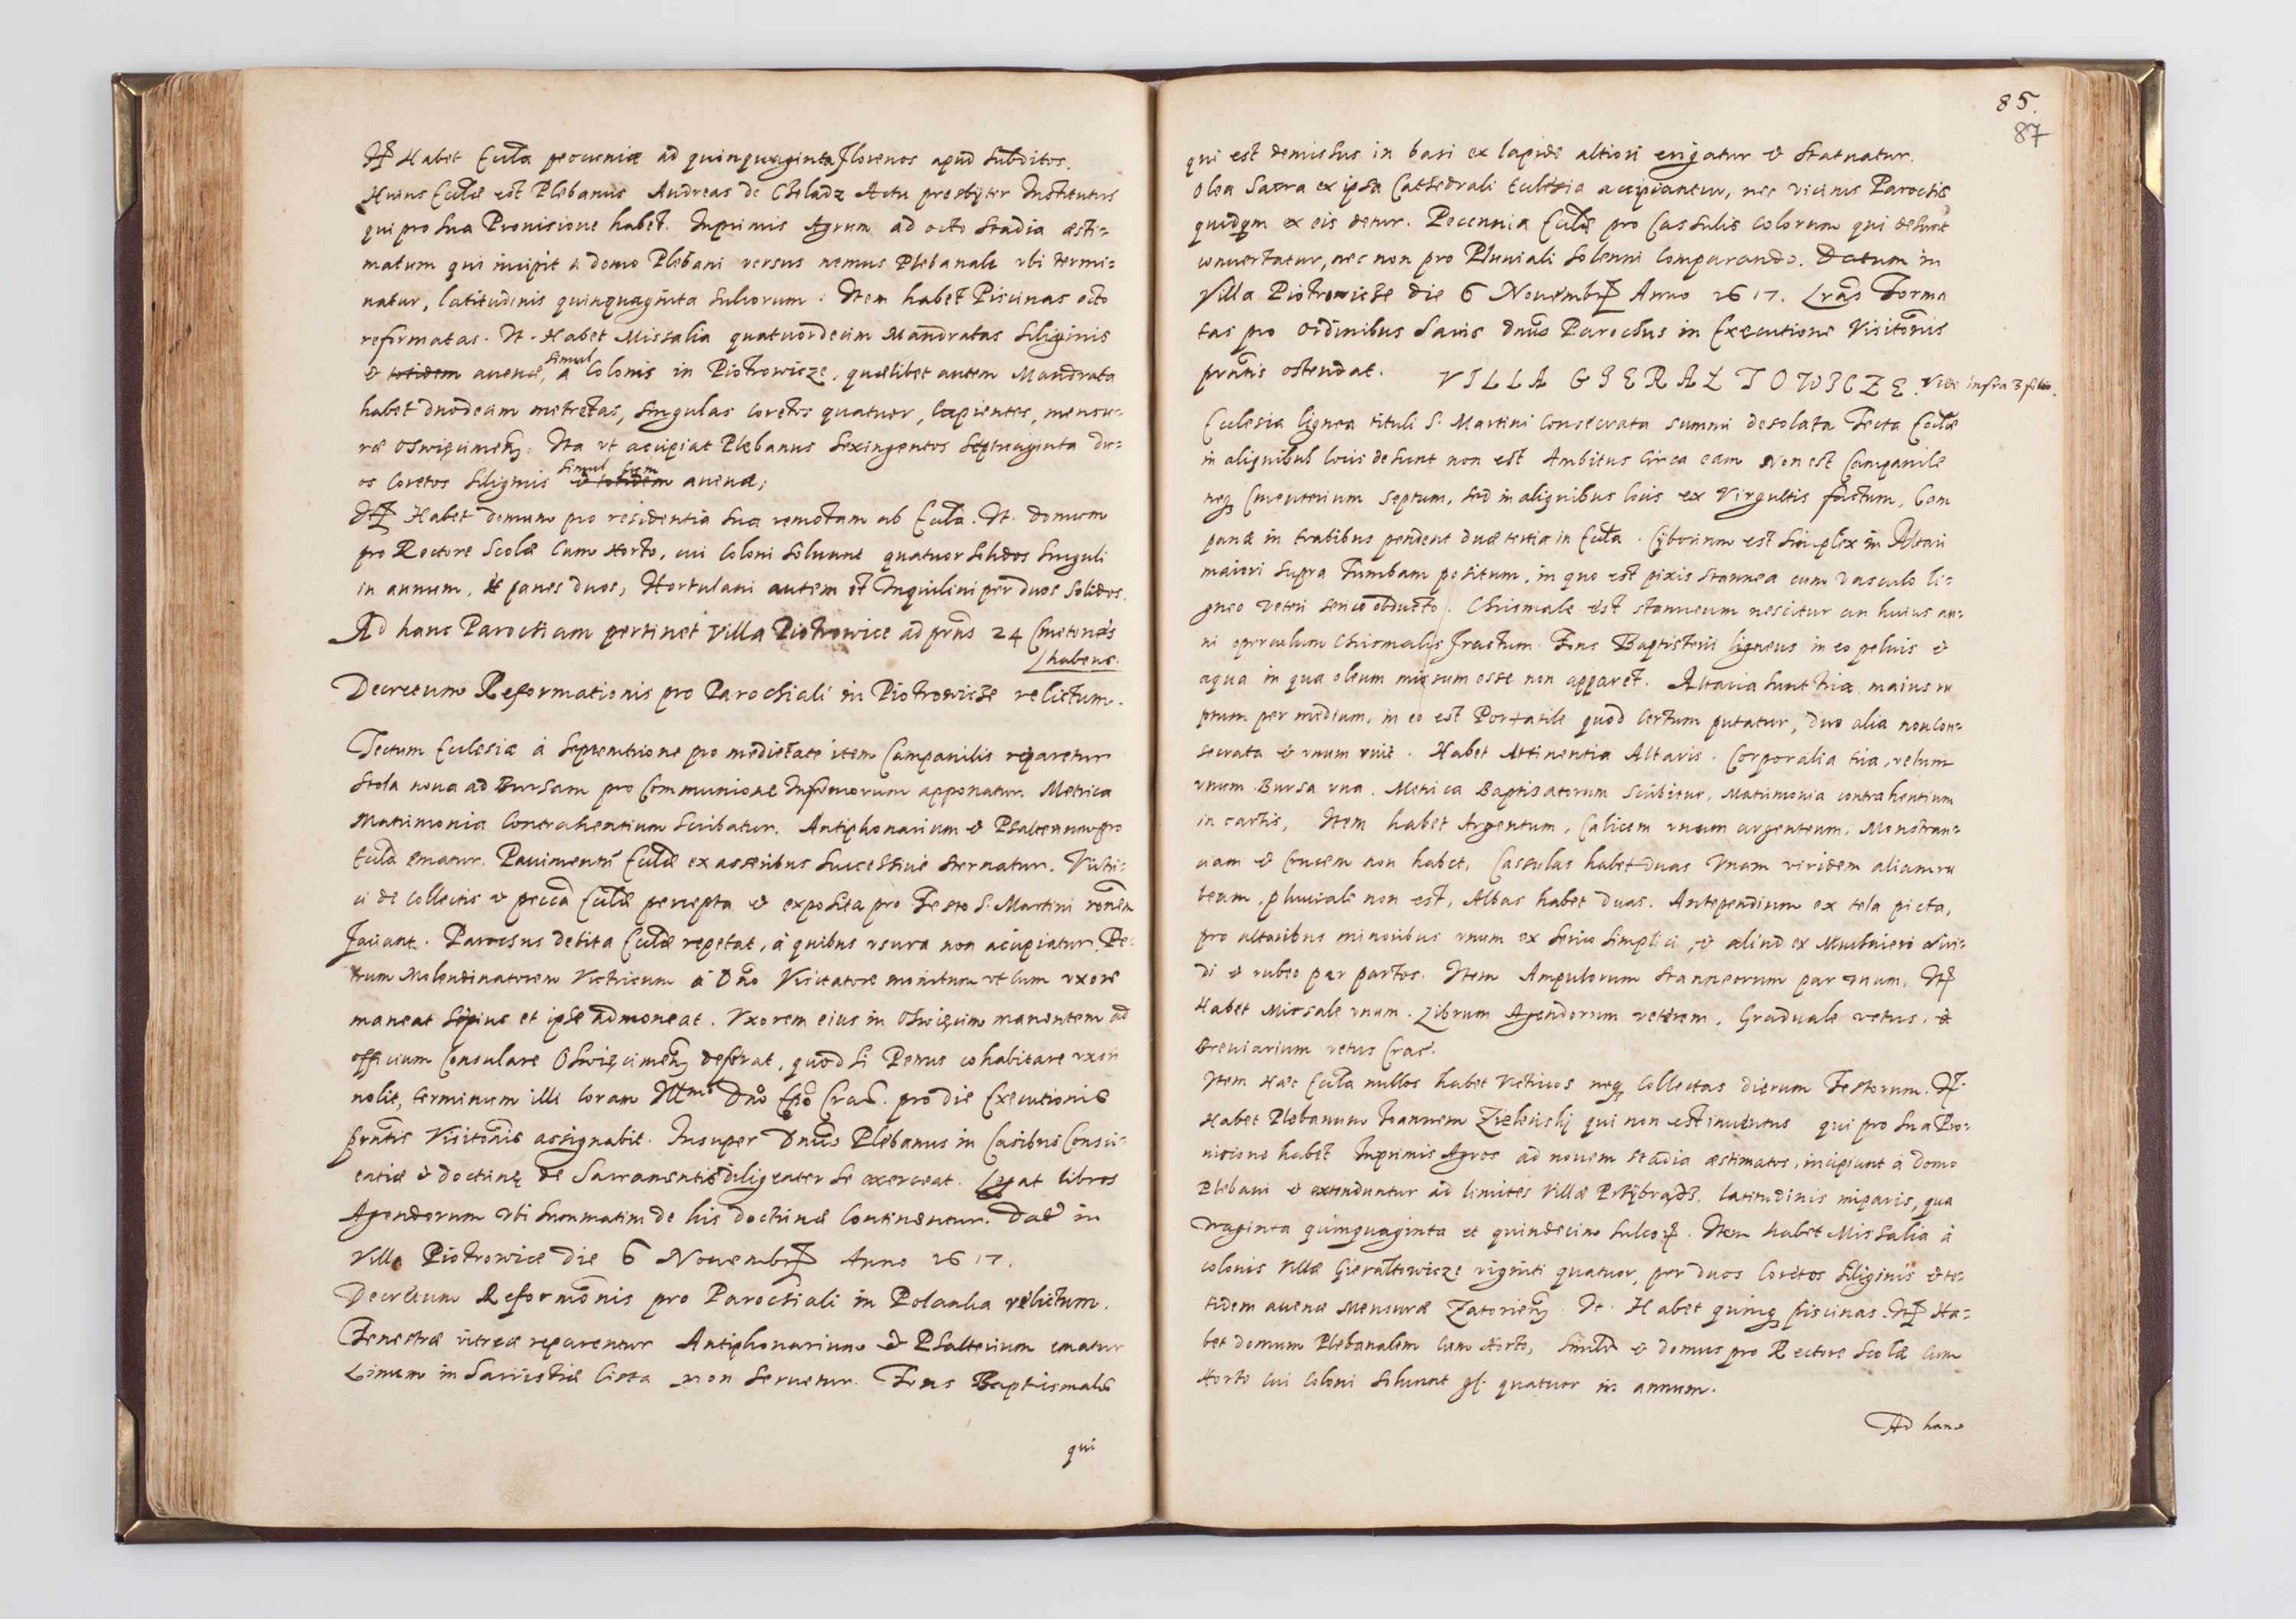 Itē Habet Eccl̄a pecuniæ ad quinquaginta florenos apud Subditos.
Huius Eccl̄æ est Plebanus Andreas de Czeladz Actu præsbÿter Institutus
qui pro sua Provisione habet. Inprimis Agrum ad octo Stadia æsti=
matum qui incipit à domo Plebani versus nemus Plebanale vbi termi=
natur, latitudinis quinquaginta sulcorum. Item habet Piscinas octo
reformatas. It. Habet Missalia quatuordecim Mandratas Siliginis
simul
& totidem avenæ, à Colonis in Piotrowicze, quælibet autem Mandrata
habet duodecim metretas, singulas Coretos quatuor, Capientes, mensu=
ræ Oswięcimen̄. Ita vt accipiat Plebanus Sexingentos Septuaginta du=
simul cum
os Coretos Siliginis & totidem avenæ;
Itē Habet domum pro residentia sua remotam ab Eccl̄a. It. domum
pro Rectore Scolæ Cum Horto, cui Coloni Soluunt quatuor Solidos Singuli
in annum, & panes duos, Hortulani autem et Inquilini per duos Solidos.
Ad hanc Parochiam pertinet Villa Piotrowice ad pr̄ns 24 Cmetones
habens.
Decretum Reformationis pro Parochiali in Piotrowicze relictum.
Tectum Ecclesiæ à Septemtrione pro medietate item Campanilis reparetur
Stola noua ad Bursam pro Communione Infirmorum apponatur. Metrica
Matrimonia Contrahentium Scribatur. Antiphonarium & Psalterium pro
Eccl̄a ematur. Pauimentū Eccl̄æ ex asseribus Successiuè Sternatur. Vitri=
ci de Collectis & pecc̄a Eccl̄æ percepta & exposita pro Festo S. Martini rōnem
faciant. Parochus debita Eccl̄æ repetat, à quibus vsura non accipiatur. Pe=
trum Molendinatorem Vitricum à Dn̄o Visitatore monitum vt Cum vxore
maneat Sæpius et ipse admoneat. Vxorem eius in Oswięcim manentem ad
officium Consulare Oswięcimen̄ deferat, quod si Petrus cohabitare vxori
nolit, terminum illi Coram Illmo Dn̄o Ep̄o Crac̄. pro die Executionis
pr̄ntis Visitōnis assignabit. Insuper Dn̄us Plebanus in Casibus Consci=
entiæ & doctrinę de Sacramentis diligenter se exerceat. Legat libros
Agendorum vbi Summatim de his doctrinæ Continentur. Dat̄ in
Villa Piotrowice die 6 Nouembr̄ Anno 1617.
Decretum Reformōnis pro Parochiali in Polanka relictum.
Fenestræ vitreæ reparentur Antiphonarium & Psalterium ematur
Linum in Sacristiæ Cista non Seruetur. Fons Baptismalis
qui
85.
87
qui est demissus in basi ex lapide altiori erigatur & Statuatur.
Olea Sacra ex ipsa Cathedrali Ecclesia accipiantur, nec vicinis Parochis
quidqm ex eis detur. Pecunia Eccl̄æ pro Cassulis Colorum qui desunt
conuertatur, nec non pro Pluuiali Solenni Comparando. Datum in
Villa Piotrowicze die 6 Nouembr̄ Anno 1617. Lr̄as Forma
tas pro Ordinibus Suis dn̄us Parochus in Executione Visitōnis
pr̄ntis ostendat. VILLA GIERALTOWICZE. Vide infra 3 folio.
Ecclesia lignea tituli S. Martini Consecrata summè desolata Tecta Eccl̄æ
in aliquibus locis desunt non est Ambitus Circa eam Non est Campanile
neq̨ Cmeuterium Septum, sed in aliquibus locis ex Virgultis factum, Cam
panæ in trabibus pendent duæ tertia in Eccl̄a. Cÿborium est Simplex in Altari
maiori supra Tumbam positum, in quo est pixis stannea cum vasculo li=
gneo veteri serico obducto. Chrismale est stanneum nescitur an huius an=
ni operculum Chrismalis fractum. Fons Baptisterii ligneus in eo peluis &
aqua in qua oleum missum esse non apparet. Altaria sunt tria maius ru
ptum per medium, in eo est Portatile quod Certum putatur, Duo alia non Con=
secrata & vnum ruit. Habet Attinentia Altaris. Corporalia tria, velum
vnum Bursa vna. Metrica Baptisatorum Scribitur, Matrimonia contrahentium
in cartis, Item habet Argentum, Calicem vnum argenteum, Monstran=
ciam & Crucem non habet, Cassulas habet duas Vnam viridem aliam ru
beam, pluuiale non est, Albas habet duas. Antependium ex tela picta,
pro altaribus minoribus vnum ex serico simplici, & aliud ex Muchaieri viri=
di & rubeo per partes. Item Ampulorum stanneorum par vnum, Itē
Habet Missale vnum. Librum Agendorum veterem, Graduale vetus, &
Breuiarium vetus Crac̄.
Item Hæc Eccl̄a nullos habet Vitricos neq̨ Collectas dierum Festorum. It.
Habet Plebanum Joannem Zielinskÿ qui non est inuentus qui pro sua Pro=
uisione habet Inprimis Agros ad nouem stadia æstimatos, incipiunt à domo
Plebani & extenduntur ad limites Villæ Przÿbradz. latitudinis imparis, qua
draginta quinquaginta et quindecim sulcor̄. Item habet Missalia à
colonis Villæ Gieraltowicze viginti quatuor, per duos Coretos Siliginis & to=
tidem auenæ Mensuræ Zatorien̄. It. Habet quinq̨ piscinas. Itē Ha=
bet domum Plebanalem Cum Horto, simile & domus pro Rectore Scolæ Cum
Horto cui Coloni Soluunt gs. quatuor in annum.
Ad hanc